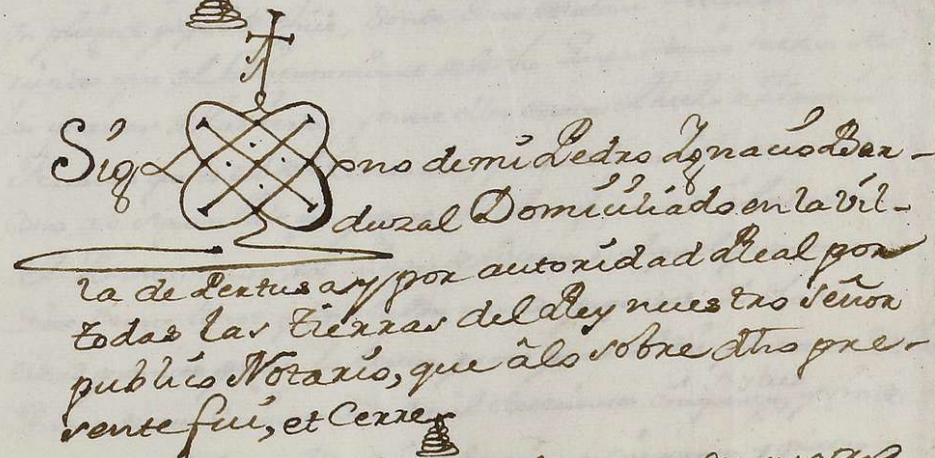 Sig no de mi Pedro Ignacio Bar-
duzal Domiciliado en la Vil-
la de Pertusa y por autoridad Real por
todas las tierras del Rey nuestro señor
publico Notario, que â lo sobre dho pre-
sente fui, et Cerre